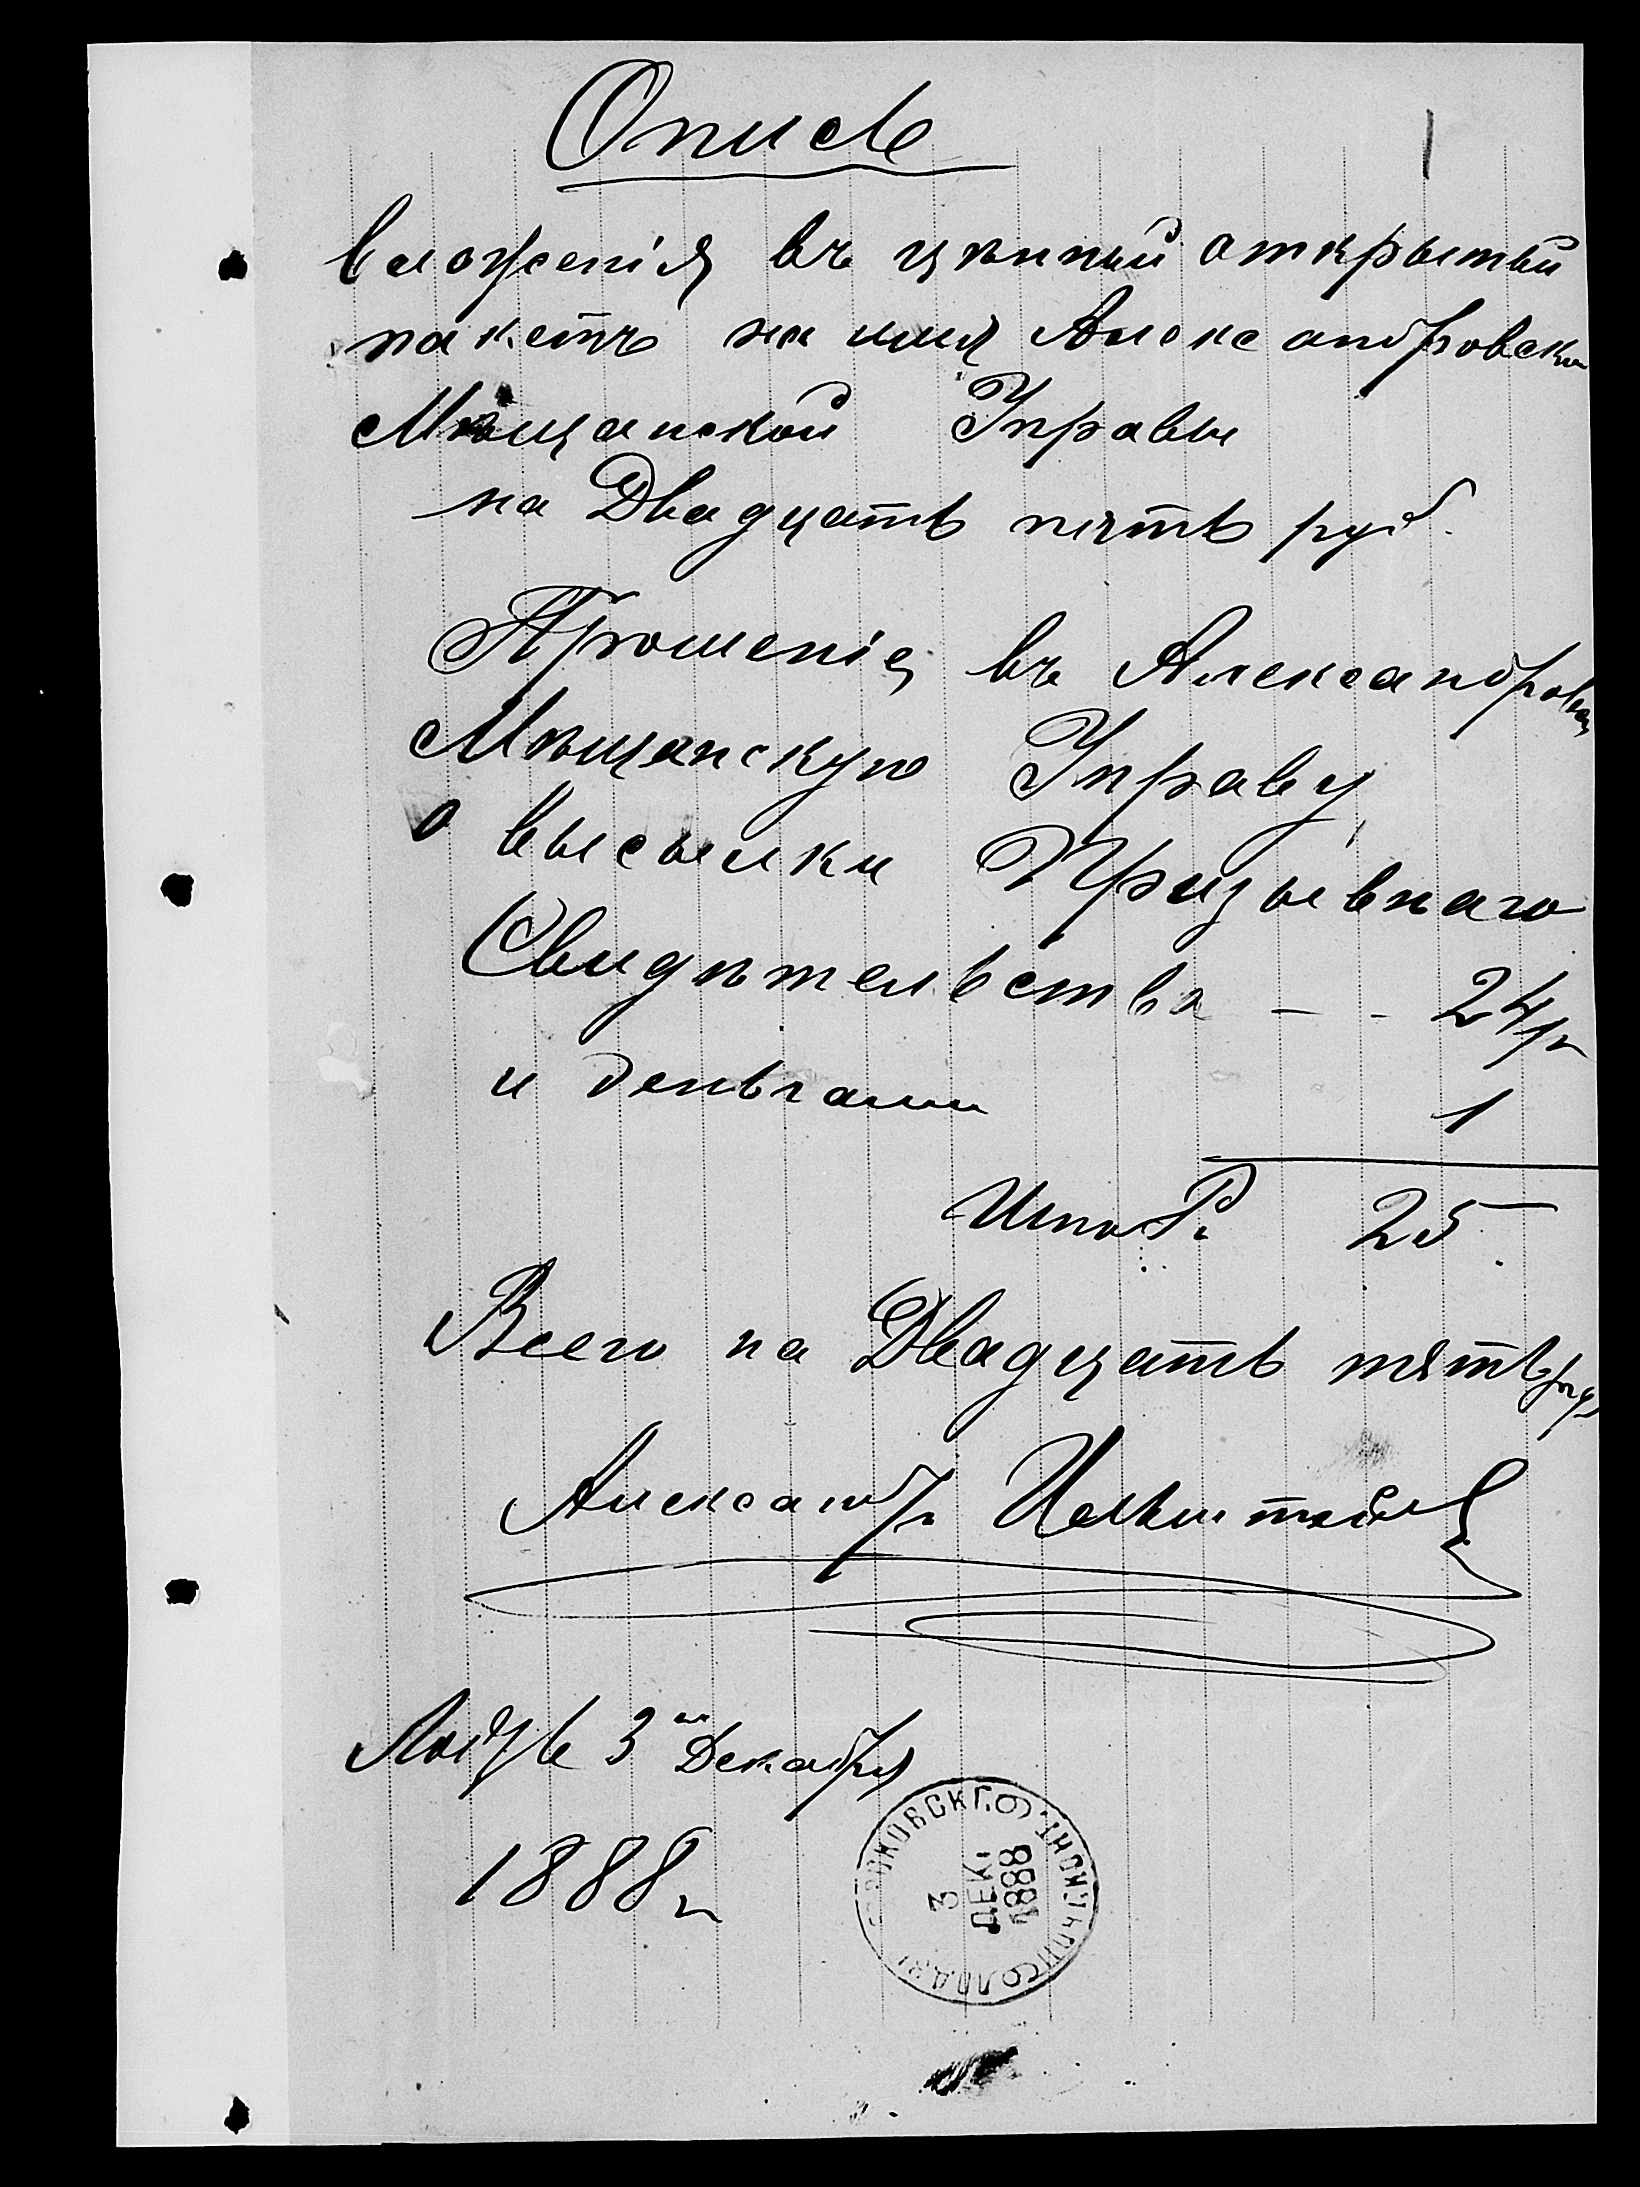 Опись
вложенія въ цѣнный открытый
пакетъ на имя Александровской
Мѣщанской Управы
на Двадцать пять руб.
Прошенія въ Александровскую
Мѣщанскую Управу
о высылки Призывнаго
Свидѣтельства - - 24р
и деньгами 1
Итого Р. 25
Всего на Двадцать пять руб
Александръ
3го Декабря
1888г
3
ДЕК.
1888